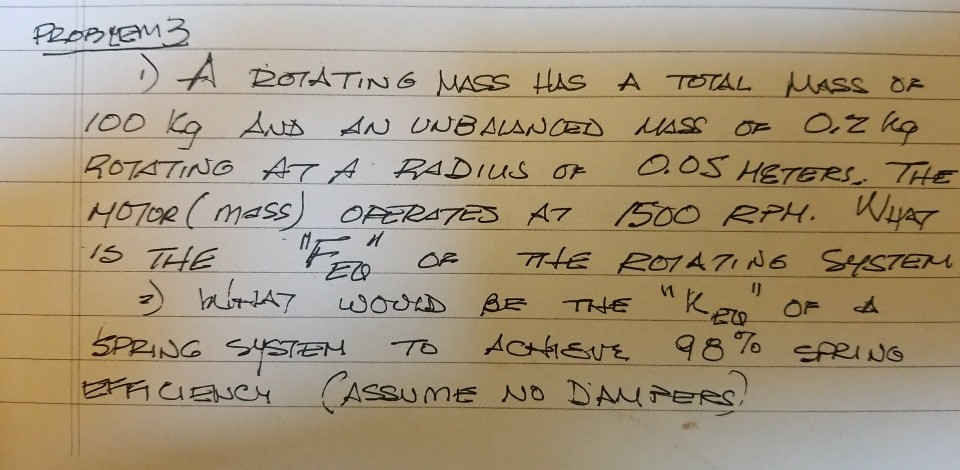 PROBLEM 3
1) A ROTATING MASS HAS A TOTAL MASS OF
100 Kg AND AN UNBALANCED MASS OF 0.2 Kg
ROTATING AT A RADIUS OF 0.05 METERS. THE
MOTOR (MASS) OPERATES AT 1500 RPM. WHAT
IS THE "F_EQ" OF THE ROTATING SYSTEM
2) WHAT WOULD BE THE "K_EQ" OF A
SPRING SYSTEM TO ACHIEVE 98% SPRING
EFFICIENCY (ASSUME NO DAMPERS)